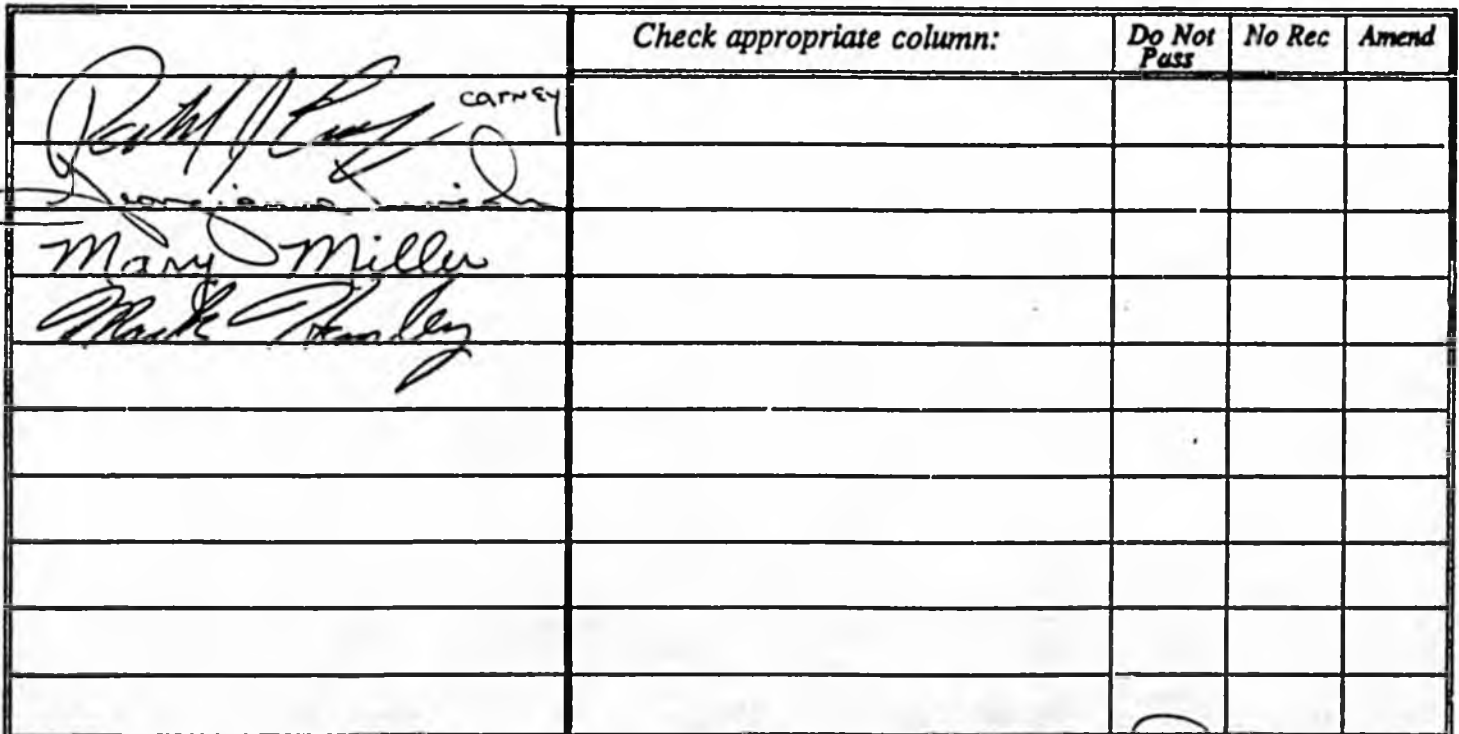 Check appropriate column: Do Not Pass No Rec Amend
Carney
Mary Miller
Mark Hanley